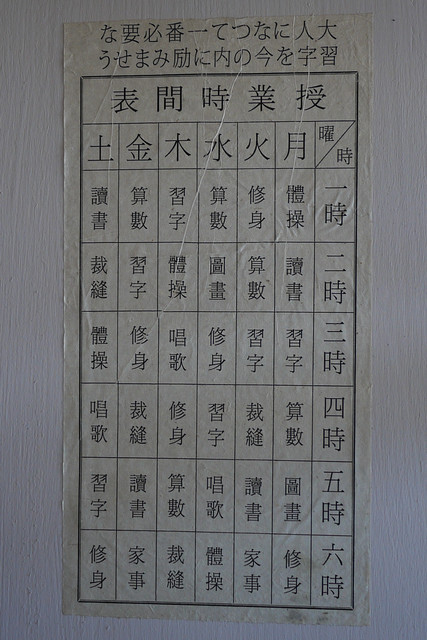 大人になつて一番必要な
習字を今の内に励みませう
授業時間表
曜 時 月 火 水 木 金 土
一時 體操 修身 算數 習字 算數 讀書
二時 讀書 算數 圖畫 體操 習字 裁縫
三時 習字 習字 修身 唱歌 修身 體操
四時 算數 裁縫 習字 修身 裁縫 唱歌
五時 圖畫 讀書 唱歌 算數 讀書 習字
六時 修身 家事 體操 裁縫 家事 修身